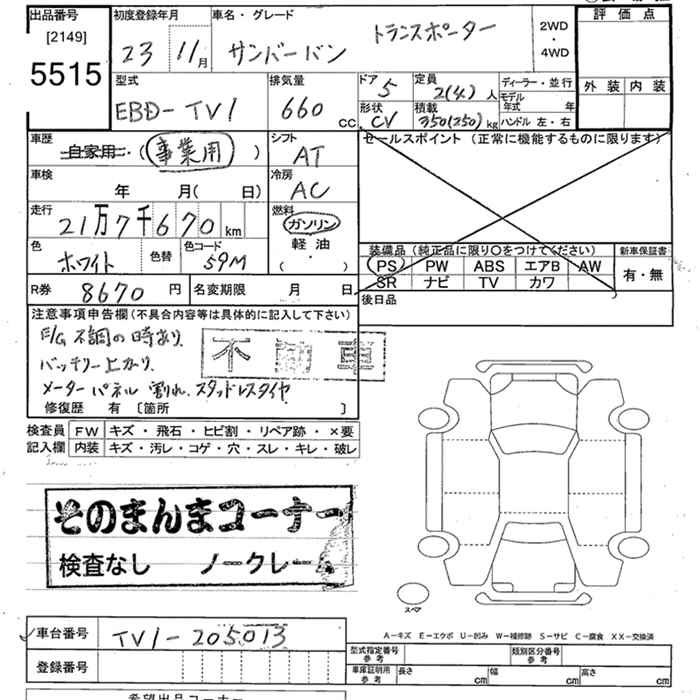 出品番号 初度登録年月 車名・グレード 評価点
[2149] 23 11月 サンバーバン トランスポーター 2WD・4WD
5515
型式 排気量 ドア 5 定員 2(4)人 ディーラー・並行 外装 内装
EBD-TV1 660cc 形状 CV 積載 350(250)kg モデル年式 年
ハンドル 左・右
車歴 シフト セールスポイント(正常に機能するものに限ります)
自家用・(事業用) AT
車検 冷房
年 月(日) AC
走行 燃料
21万7千670km ガソリン
軽油
( )
色 ホワイト 色替 色コード 59M
装備品(純正品に限り○をつけてください) 新車保証書
PS PW ABS エアB AW 有・無
SR ナビ TV カワ
R券 8670円 名変期限 月 日 後日品
注意事項申告欄(不具合内容等は具体的に記入して下さい)
E/G 不調の時あり
バッテリー上がり
メーターパネル割れ、スタッドレスタイヤ
修復歴 有 [箇所 ]
検査員 FW キズ・飛石・ヒビ割・リペア跡・×要
記入欄 内装 キズ・汚レ・コゲ・穴・スレ・キレ・破レ
そのまんまコーナー
検査なし ノークレーム
スペア
A-キズ E-エクボ U-凹み W-補修跡 S-サビ C-腐食 XX-交換済
車台番号 TV1-205013
型式指定番号 参考 類別区分番号 参考
登録番号 車庫証明用 参考 長さ cm 幅 cm 高さ cm
希望出品コーナー